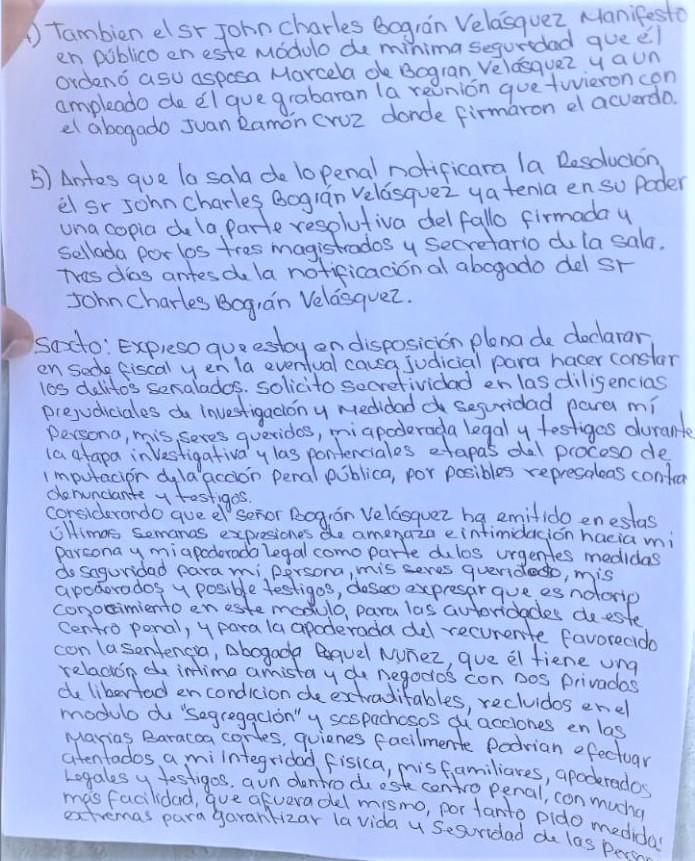 4) Tambien el sr John Charles Bográn Velásquez Manifesto
en público en este módulo de minima seguredad que él
ordenó asu asposa Marcela de Bogran Velásquez y aun
ampleado de él que grabaran la reunión que tuvieron con
el abogado Juan Ramón Cruz donde firmarón el acuerdo.
5) Antes que la sala de lo penal notificara la Resolución,
él sr John Charles Bográn Velásquez ya tenia en su Poder
una copia de la parte resolutiva del fallo firmada y
sellada por los tres magistrados y Secretario de la sala.
Tres días antes de la notificación al abogado del sr
John Charles Bográn Velásquez.
Sexto: Expreso que estoy en disposición plena de declarar,
en sede fiscal y en la eventual causa judicial para hacer constar
los delitos señalados. solicito secretividad en las diligencias
prejudiciales de investigación y medidad de seguridad para mí
Persona, mis seres queridos, mi apoderada legal y testigos durante
la etapa investigativa y las pontenciales etapas del proceso de
imputación de la acción penal pública, por posibles represaleas contra
denunciante y testigos.
considerando que el señor Bográn Velásquez ha emitido en estas
últimas semanas expresiones de amenaza e intimidación hacia mi
parsona y mi apoderado legal como parte de los urgentes medidas
de saguridad para mi persona, mis seres querideso, mis
apoderados y posible testigos, deseo expresar que es notorio
conocimiento en este modulo, para las autoridades de este
centro penal, y para la apoderada del recurente favorecido
con la sentencia, Abogada Raquel Nuñez, que él tiene una
relación de intima amista y de negocios con dos privados
de libertad en condicion de extraditables, recluidos en el
modulo de "Segregación" y sospachosos de acciones en las
Marias Baracoa cortes, quienes facilmente podrian efectuar
atentados a mi integridad física, mis familiares, apoderados
Legales y testigos. aun dentro de este centro penal, con mucha
más facilidad, que afuera del mismo, por tanto pido medidas
extremas para garantizar la vida y seguridad de las